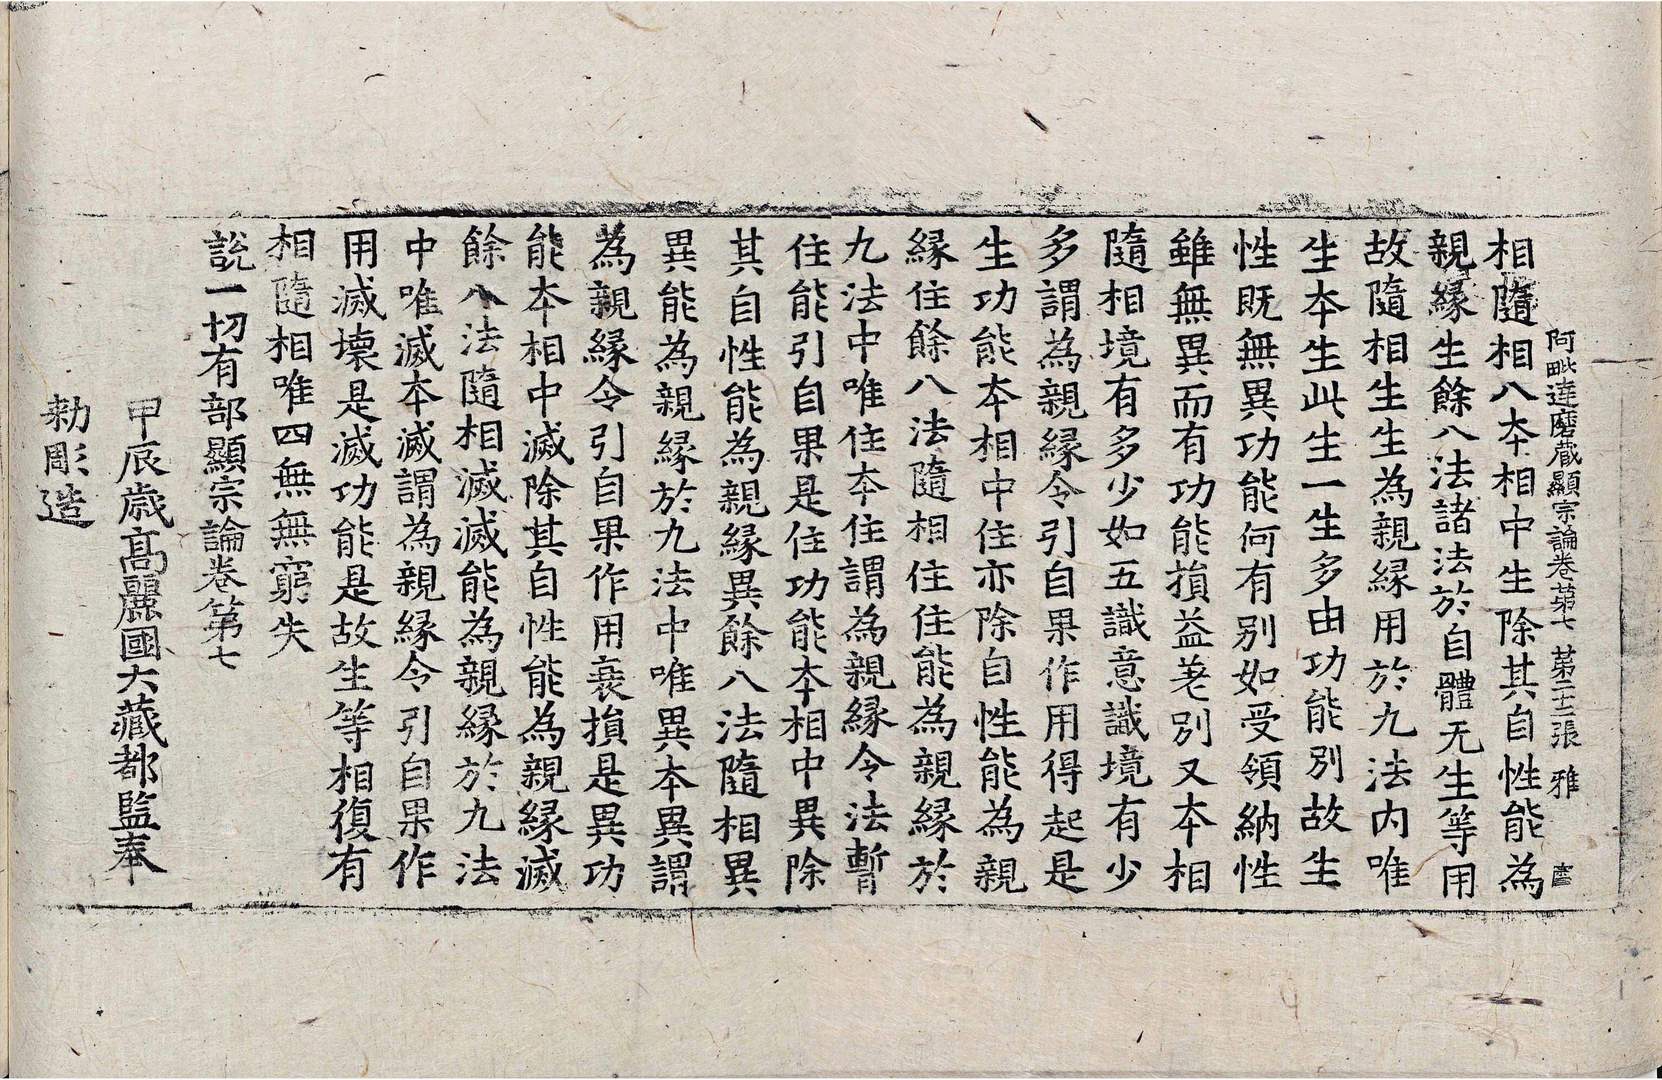 阿毗達磨藏顯宗論卷第七 第二十三張 雅
相隨相八本相中生除其自性能為
親緣生餘八法諸法於自體无生等用
故隨相生生為親緣用於九法內唯
生本生此生一生多由功能別故生
性既無異功能何有別如受領納性
雖無異而有功能損益差別又本相
隨相境有多少如五識意識境有少
多謂為親緣令引自果作用得起是
生功能本相中住亦除自性能為親
緣住餘八法隨相住住能為親緣於
九法中唯住本住謂為親緣令法暫
住能引自果是住功能本相中異除
其自性能為親緣異餘八法隨相異
異能為親緣於九法中唯異本異謂
為親緣令引自果作用衰損是異功
能本相中滅除其自性能為親緣滅
餘八法隨相滅滅能為親緣於九法
中唯滅本滅謂為親緣令引自果作
用滅壞是滅功能是故生等相復有
相隨相唯四無無窮失
說一切有部顯宗論卷第七
甲辰歲高麗國大藏都監奉
勅彫造